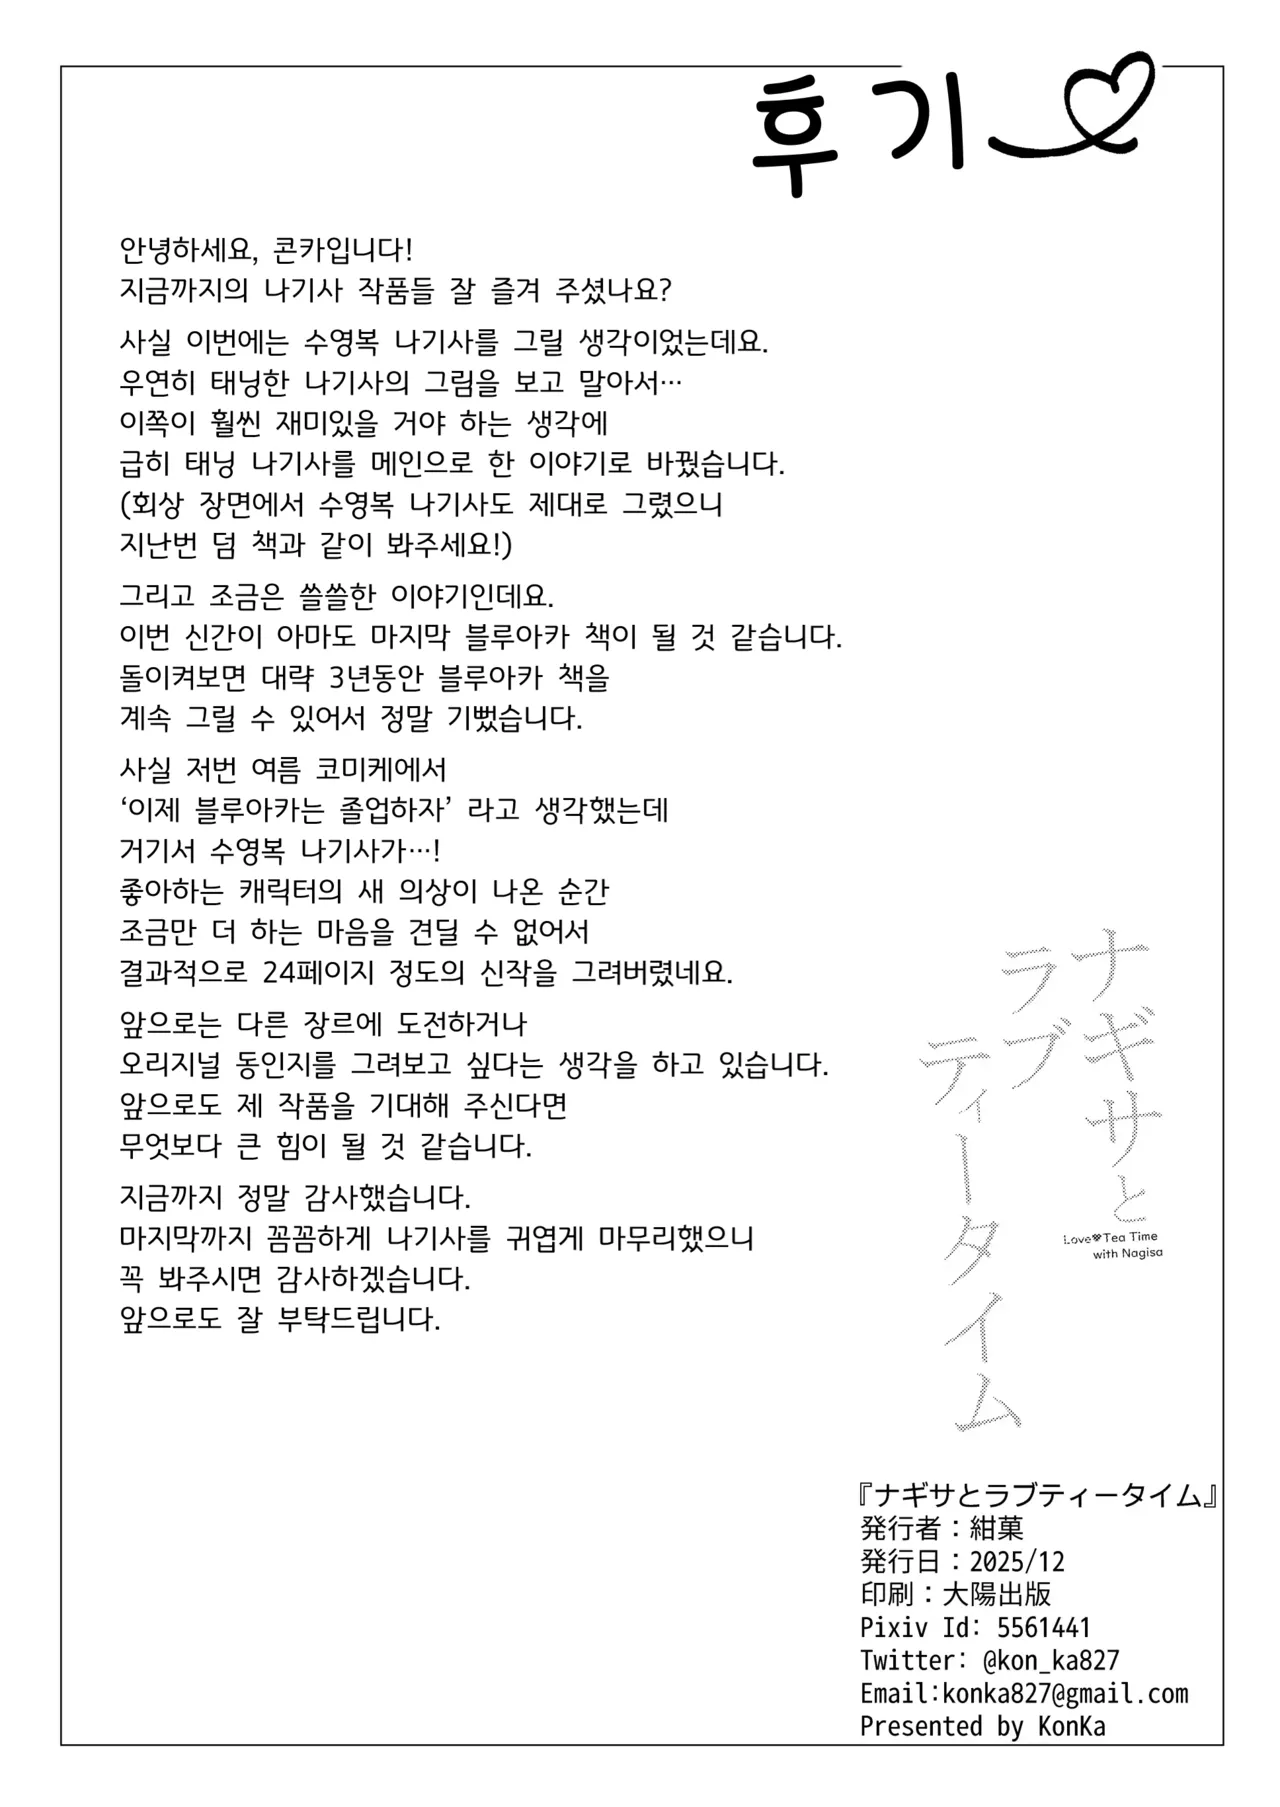 후기
안녕하세요, 콘카입니다!
지금까지의 나기사 작품들 잘 즐겨 주셨나요?
사실 이번에는 수영복 나기사를 그릴 생각이었는데요.
우연히 태닝한 나기사의 그림을 보고 말아서…
이쪽이 훨씬 재미있을 거야 하는 생각에
급히 태닝 나기사를 메인으로 한 이야기로 바꿨습니다.
(회상 장면에서 수영복 나기사도 제대로 그렸으니
지난번 덤 책과 같이 봐주세요!)
그리고 조금은 쓸쓸한 이야기인데요.
이번 신간이 아마도 마지막 블루아카 책이 될 것 같습니다.
돌이켜보면 대략 3년동안 블루아카 책을
계속 그릴 수 있어서 정말 기뻤습니다.
사실 저번 여름 코미케에서
‘이제 블루아카는 졸업하자’ 라고 생각했는데
거기서 수영복 나기사가…!
좋아하는 캐릭터의 새 의상이 나온 순간
조금만 더 하는 마음을 견딜 수 없어서
결과적으로 24페이지 정도의 신작을 그려버렸네요.
앞으로는 다른 장르에 도전하거나
오리지널 동인지를 그려보고 싶다는 생각을 하고 있습니다.
앞으로도 제 작품을 기대해 주신다면
무엇보다 큰 힘이 될 것 같습니다.
지금까지 정말 감사했습니다.
마지막까지 꼼꼼하게 나기사를 귀엽게 마무리했으니
꼭 봐주시면 감사하겠습니다.
앞으로도 잘 부탁드립니다.
ナギサと
ラブ
ティータイム
Love♥Tea Time
with Nagisa
『ナギサとラブティータイム』
発行者：紺菓
発行日：2025/12
印刷：大陽出版
Pixiv Id: 5561441
Twitter: @kon_ka827
Email:konka827@gmail.com
Presented by KonKa